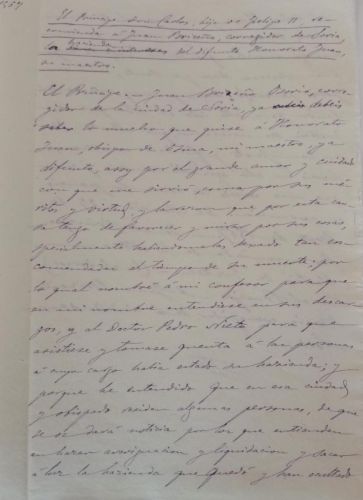 El Príncipe don Carlos, hijo de Felipe II re-
comienda á Juan Briceño, corregidor de Soria,
la hacienda del difunto Honorato Juan,
su maestro.
El Príncipe = Juan Briceño Osorio, corre-
gidor de la ciudad de Soria, ya debeis
saber lo mucho que quise á Honorato
Juan, obispo de Osma, mi maestro, ya
difunto, assy por el grande amor y cuidado
con que me sirvió, como por sus mé-
ritos y virtud, y la razon que por esta cau-
sa tengo de favorecer y mirar por sus cosas,
specialmente habiéndomelas dejado tan en-
comendadas al tiempo de su muerte: por
lo qual nombré á mi confesor para que
en mi nombre entendiese en sus descar-
gos, y al Doctor Pedro Nieto para que
asistiese y tomase quenta á las personas
á cuyo cargo habia estado su hacienda; y
porque he entendido que en esa ciudad
y obispado residen algunas personas, de que
se os dará noticia por los que entienden
en hacer averiguacion y liquidacion y sacar
á luz la hacienda que quedó y han